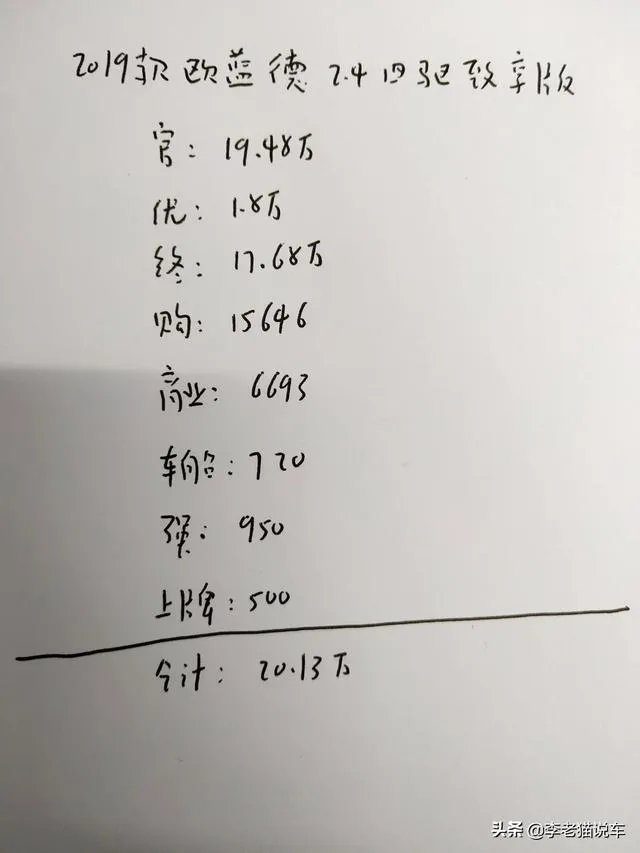 2019款欧蓝德 2.4四驱致享版
官: 19.48万
优: 1.8万
终: 17.68万
购: 15646
商业: 6693
车船: 720
强: 950
上牌: 500
合计: 20.13万
头条 @李老猫说车